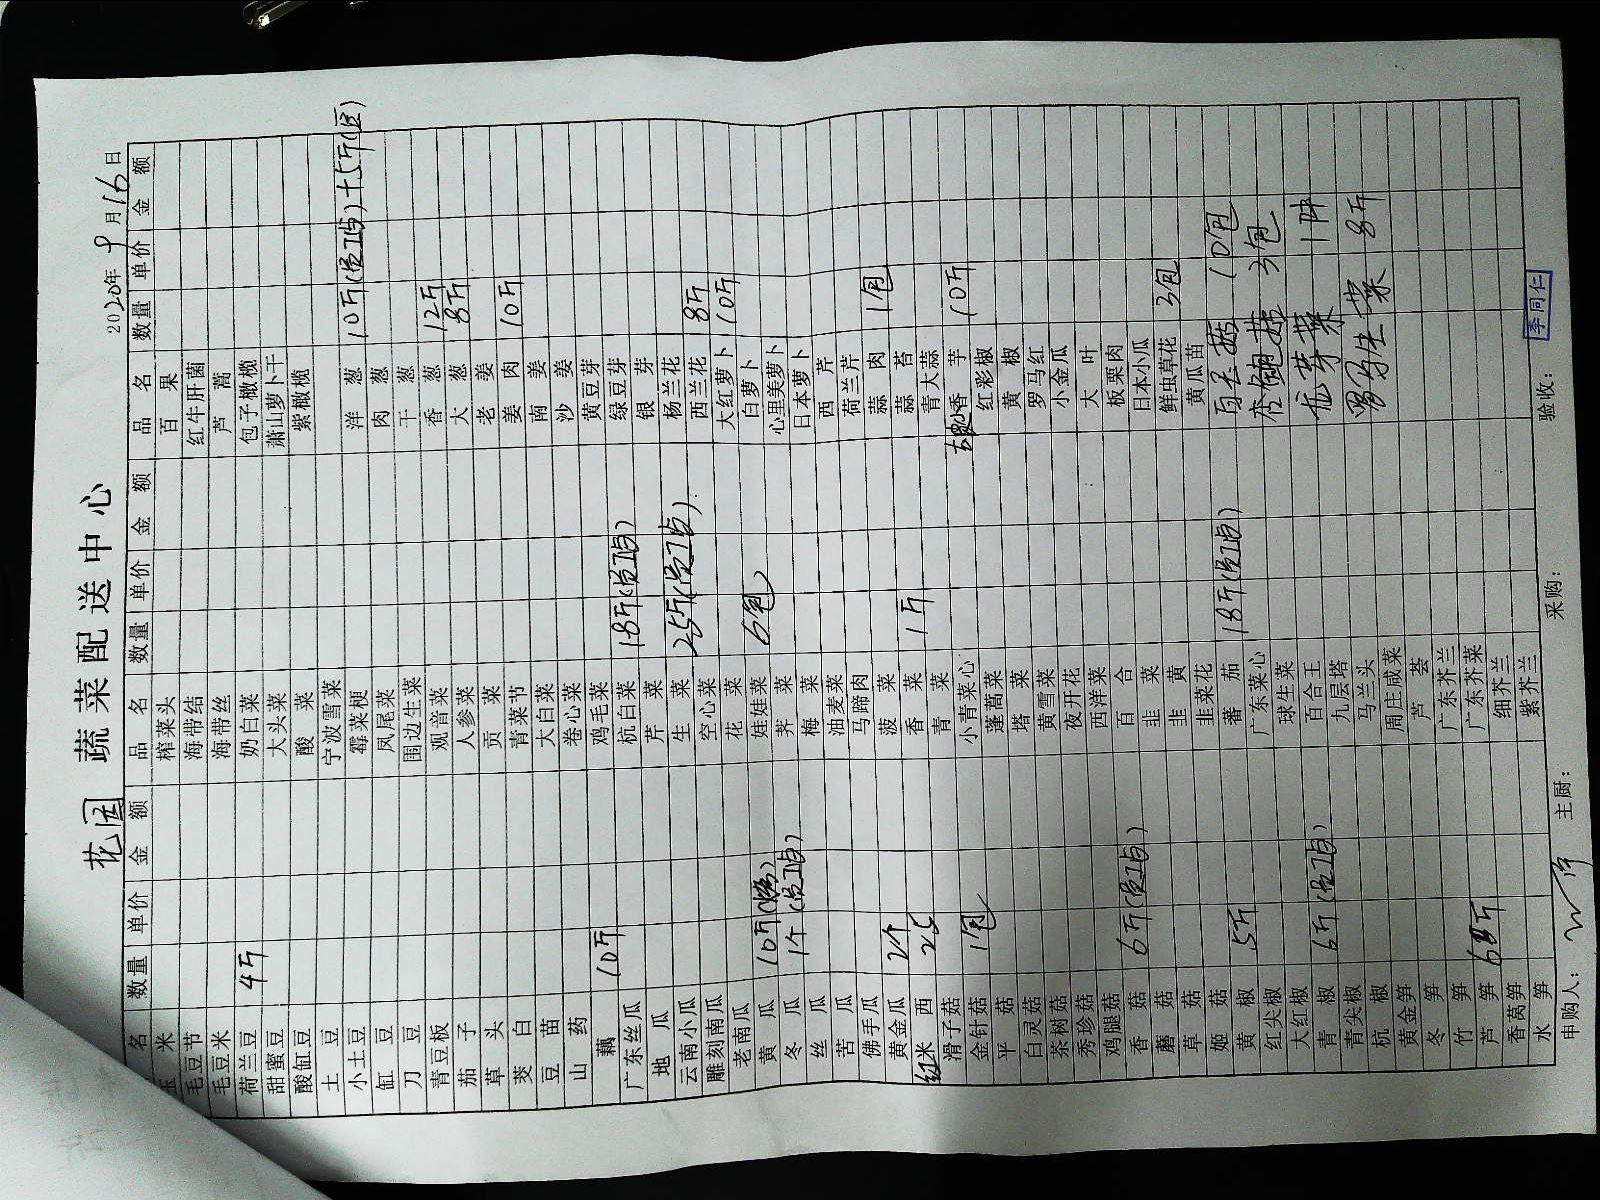 花园 蔬菜配送中心
2020年9月16日
品名 数量 单价 金额 品名 数量 单价 金额 品名 数量 单价 金额
玉米 榨菜头 百果
毛豆节 海带结 红牛肝菌
毛豆米 海带丝 芦蒿
荷兰豆 4斤 奶白菜 包子橄榄
甜蜜豆 大头菜 萧山萝卜干
酸缸豆 酸菜 紫橄榄
土豆 宁波雪菜
小土豆 霉菜梗 洋葱 10斤(员工点)+5斤
缸豆 凤尾菜 肉葱
刀豆 围边生菜 干葱
青豆板 观音菜 香葱 12斤
茄子 人参菜 大葱 8斤
草头 贡菜 老姜
茭白 青菜节 姜肉 10斤
豆苗 大白菜 南姜
山药 卷心菜 沙姜
藕 10斤 鸡毛菜 黄豆芽
广东丝瓜 杭白菜 18斤(员工点) 绿豆芽
地瓜 芹菜 银芽
云南小瓜 生菜 25斤(员工点) 杨兰花
雕刻南瓜 空心菜 西兰花 8斤
老南瓜 花菜 大红萝卜 10斤
黄瓜 10斤 娃娃菜 6包 白萝卜
冬瓜 1个(员工点) 荠菜 心里美萝卜
丝瓜 梅菜 日本萝卜
苦瓜 油麦菜 西芹
佛手瓜 马蹄肉 荷兰芹
黄金瓜 2个 菠菜 蒜肉 1包
红米西 25 香菜 1斤 蒜苔
滑子菇 青菜 青大蒜
金针菇 1包 小青菜心 小香芋 10斤
平菇 蓬蒿菜 红彩椒
白灵菇 塔菜 黄椒
茶树菇 黄雪菜 罗马红
秀珍菇 夜开花 小金瓜
鸡腿菇 西洋菜 大叶
香菇 6斤(员工点) 百合 板栗肉
蘑菇 韭菜 日本小瓜
草菇 韭黄 鲜虫草花 3包
姬菇 韭菜花 黄瓜苗
黄椒 5斤 蕃茄 18斤(员工点) 白玉菇 10包
红尖椒 广东菜心 杏鲍菇 3包
大红椒 球生菜
青椒 6斤(员工点) 百合王 芽菜
青尖椒 九层塔
杭椒 马兰头 罗马生菜 8斤
黄金笋 周庄咸菜
冬笋 芦荟
竹笋 广东芥兰
芦笋 6斤 广东芥菜
香莴笋 细芥兰
水笋 紫芥兰
申购人： 主厨： 采购： 验收： 李同仁